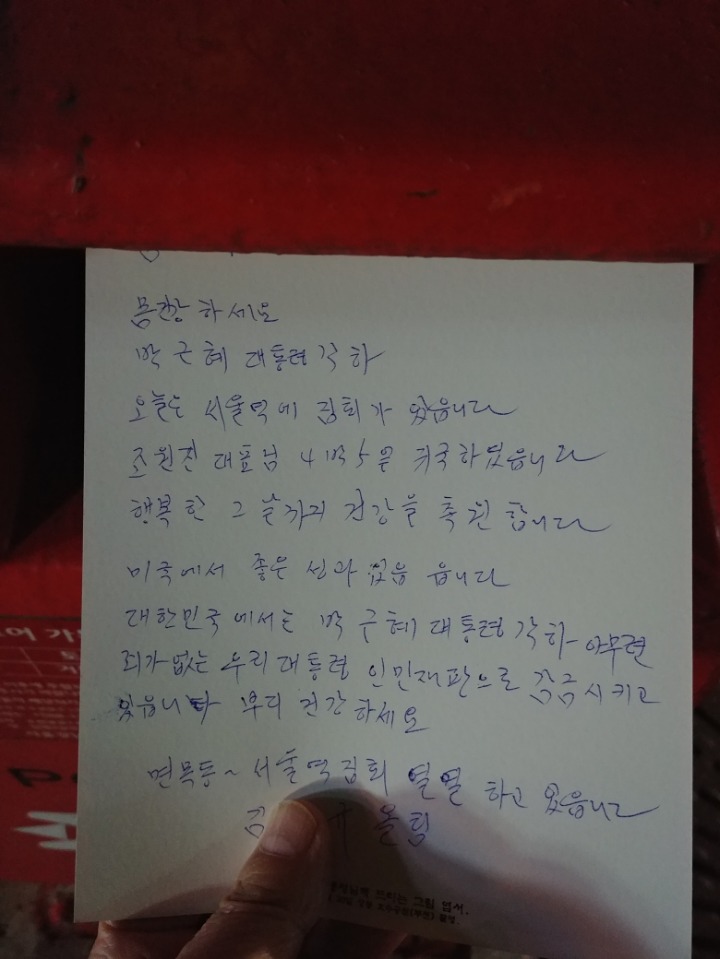 몸건강 하세요
박근혜 대통령 각하
오늘도 서울역에 집회가 있읍니다
조원진 대표님 4박5일 귀국하였읍니다
행복한 그 날까지 건강을 축원 합니다
미국에서 좋은 성과 있읍 읍니다
대한민국에서는 박근혜 대통령 각하 아무런
죄가 없는 우리 대통령 인민재판으로 감금시키고
있읍니다 부디 건강하세요
면목동~ 서울역집회 열열 하고 있읍니다
김 규 올림
드리는 그림 엽서.